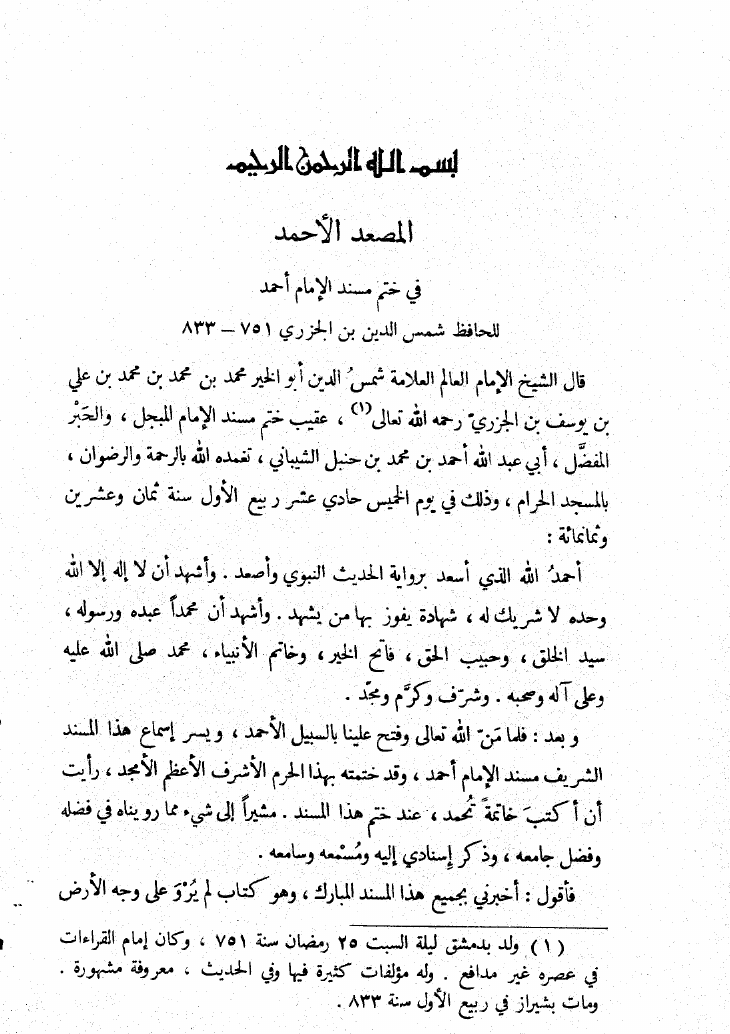 بسم الله الرحمن الرحيم
المصعد الأحمد
في ختم مسند الإمام أحمد
للحافظ شمس الدين بن الجزري ٧٥١ – ٨٣٣
قال الشيخ الإمام العالم العلامة شمسُ الدين أبو الخير محمد بن محمد بن محمد بن علي
بن يوسف بن الجزريّ رحمه الله تعالى(١) ، عقيب ختم مسند الإمام المبجل ، والحَبْر
المفضَّل ، أبي عبد الله أحمد بن محمد بن حنبل الشيباني ، تغمده الله بالرحمة والرضوان ،
بالمسجد الحرام ، وذلك في يوم الخميس حادي عشر ربيع الأول سنة ثمان وعشرين
وثمانمائة :
أحمدُ الله الذي أسعد برواية الحديث النبوي وأصعد . وأشهد أن لا إله إلا الله
وحده لا شريك له ، شهادة يفوز بها من يشهد . وأشهد أن محمداً عبده ورسوله ،
سيد الخلق ، وحبيب الحق ، فاتح الخير ، وخاتم الأنبياء ، محمد صلى الله عليه
وعلى آله وصحبه . وشرّف وكرَّم ومجّد .
وبعد : فلما مَنّ الله تعالى وفتح علينا بالسبيل الأحمد ، ويسر إسماع هذا المسند
الشريف مسند الإمام أحمد ، وقد ختمته بهذا الحرم الأشرف الأعظم الأمجد ، رأيت
أن أكتبَ خاتمةً تُحمد ، عند ختم هذا المسند . مشيراً إلى شيء مما رويناه في فضله
وفضل جامعه ، وذكر إسنادي إليه ومُسْمعه وسامعه .
فأقول : أخبرني بجميع هذا المسند المبارك ، وهو كتاب لم يُرْوَ على وجه الأرض
(١) ولد بدمشق ليلة السبت ٢٥ رمضان سنة ٧٥١ ، وكان إمام القراءات
في عصره غير مدافع . وله مؤلفات كثيرة فيها وفي الحديث ، معروفة مشهورة .
ومات بشيراز في ربيع الأول سنة ٨٣٣ .